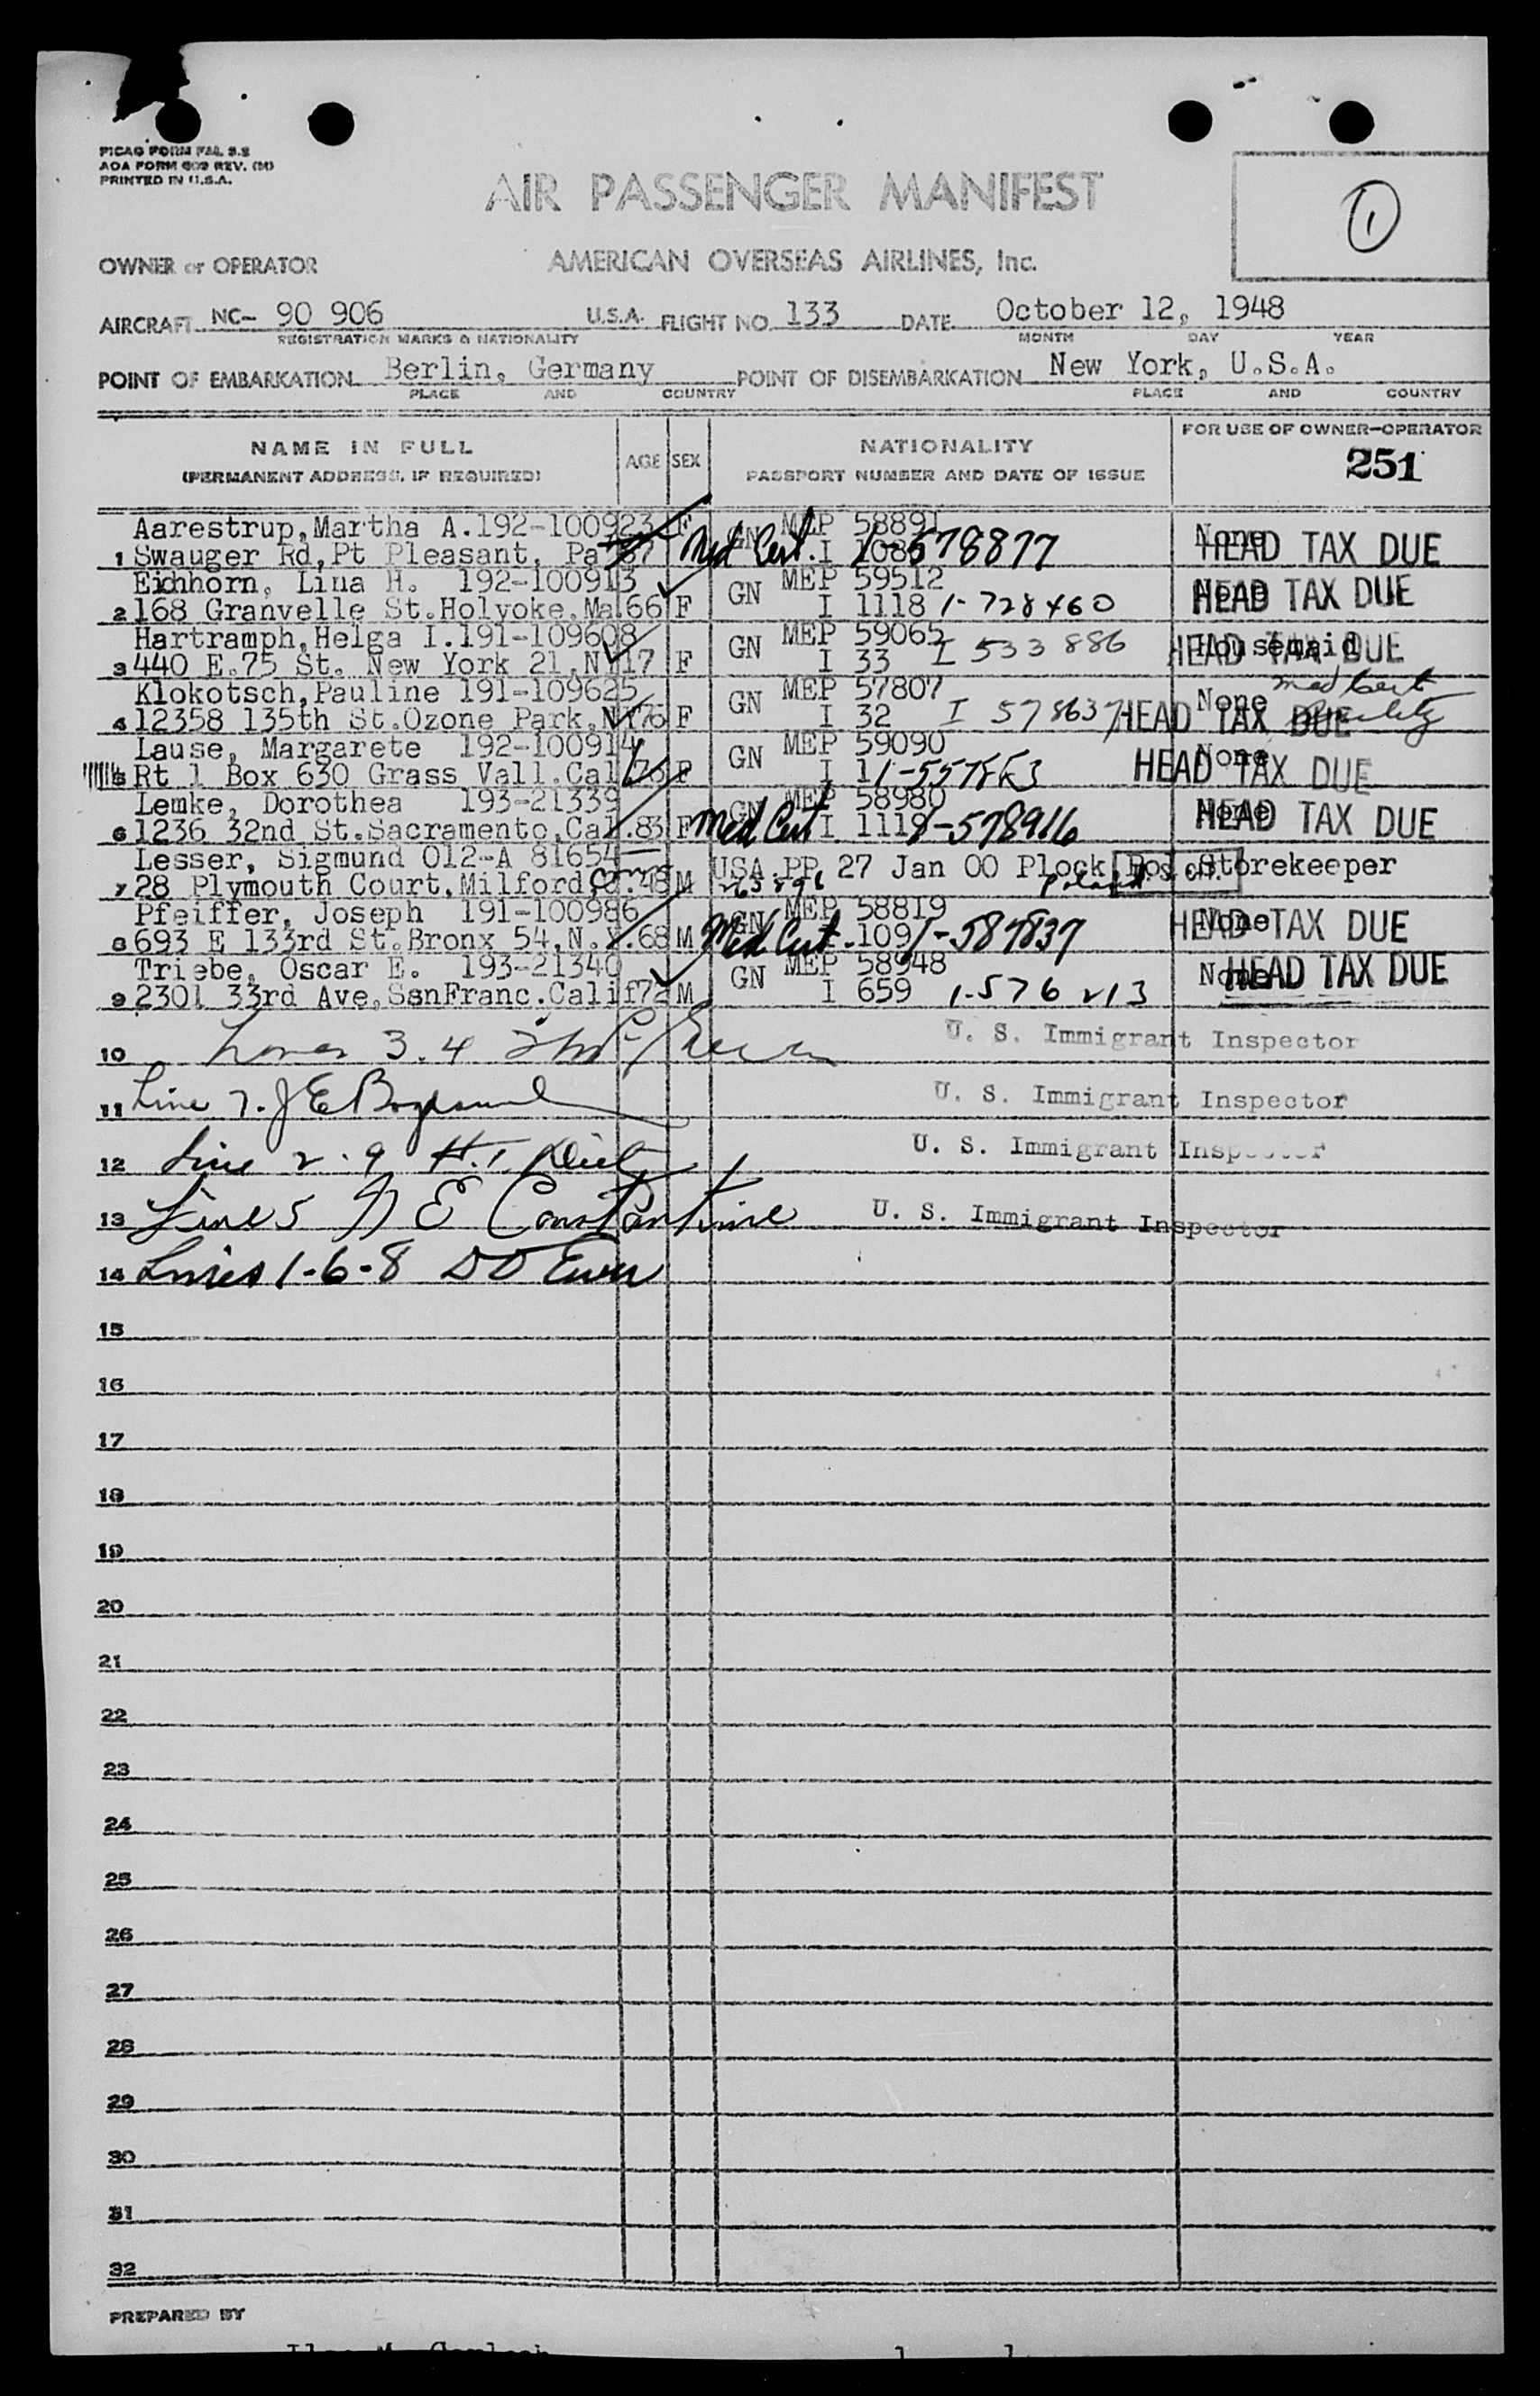 PICAO FORM FAL 2.2
AOA FORM 609 REV. (M)
PRINTED IN U.S.A.
AIR PASSENGER MANIFEST
1
OWNER or OPERATOR AMERICAN OVERSEAS AIRLINES, Inc.
AIRCRAFT NC- 90 906 U.S.A. FLIGHT NO. 133 DATE October 12, 1948
REGISTRATION MARKS & NATIONALITY MONTH DAY YEAR
POINT OF EMBARKATION Berlin, Germany POINT OF DISEMBARKATION New York, U.S.A.
PLACE AND COUNTRY PLACE AND COUNTRY
NAME IN FULL AGE SEX NATIONALITY FOR USE OF OWNER-OPERATOR
(PERMANENT ADDRESS, IF REQUIRED) PASSPORT NUMBER AND DATE OF ISSUE 251
Aarestrup,Martha A.192-100923 F GN MEP 58891 None
1 Swauger Rd,Pt Pleasant, Pa 67 Med Cert. I 1-578877 HEAD TAX DUE
Eichhorn, Lina H. 192-100913 GN MEP 59512 None
2 168 Granvelle St.Holyoke,Ma 66 F I 1118 1-728460 HEAD TAX DUE
Hartramph,Helga I.191-109608 GN MEP 59065 Housemaid
3 440 E.75 St. New York 21,N 17 F I 33 I 533886 HEAD TAX DUE
Klokotsch,Pauline 191-109625 GN MEP 57807 None Med Cert
4 12358 135th St.Ozone Park,NY 76 F I 32 I 578637 HEAD TAX DUE Senility
Lause, Margarete 192-100914 GN MEP 59090 None
5 Rt 1 Box 630 Grass Vall.Cal 76 F I HEAD TAX DUE
Lemke, Dorothea 193-21339 GN MEP 58980 None
6 1236 32nd St.Sacramento,Cal.83 F Med Cert I 1119 1-578916 HEAD TAX DUE
Lesser, Sigmund 012-A 81654 USA PP 27 Jan 00 Plock, Pol. Storekeeper
7 28 Plymouth Court,Milford, Conn. 48 M Poland
Pfeiffer, Joseph 191-100986 GN MEP 58819 None
8 693 E 133rd St.Bronx 54,N.Y.68 M Med Cert. 109 1-587837 HEAD TAX DUE
Triebe, Oscar E. 193-21340 GN MEP 58948 None
9 2301 33rd Ave,SanFranc.Calif 72 M I 659 1-576213 HEAD TAX DUE
10 Lines 3.4 U. S. Immigrant Inspector
11 Line 7. J E U. S. Immigrant Inspector
12 Line 2.9 H.T. U. S. Immigrant Inspector
13 Line 5 N E Constantine U. S. Immigrant Inspector
14 Lines 1-6-8 D D
15
16
17
18
19
20
21
22
23
24
25
26
27
28
29
30
31
32
PREPARED BY